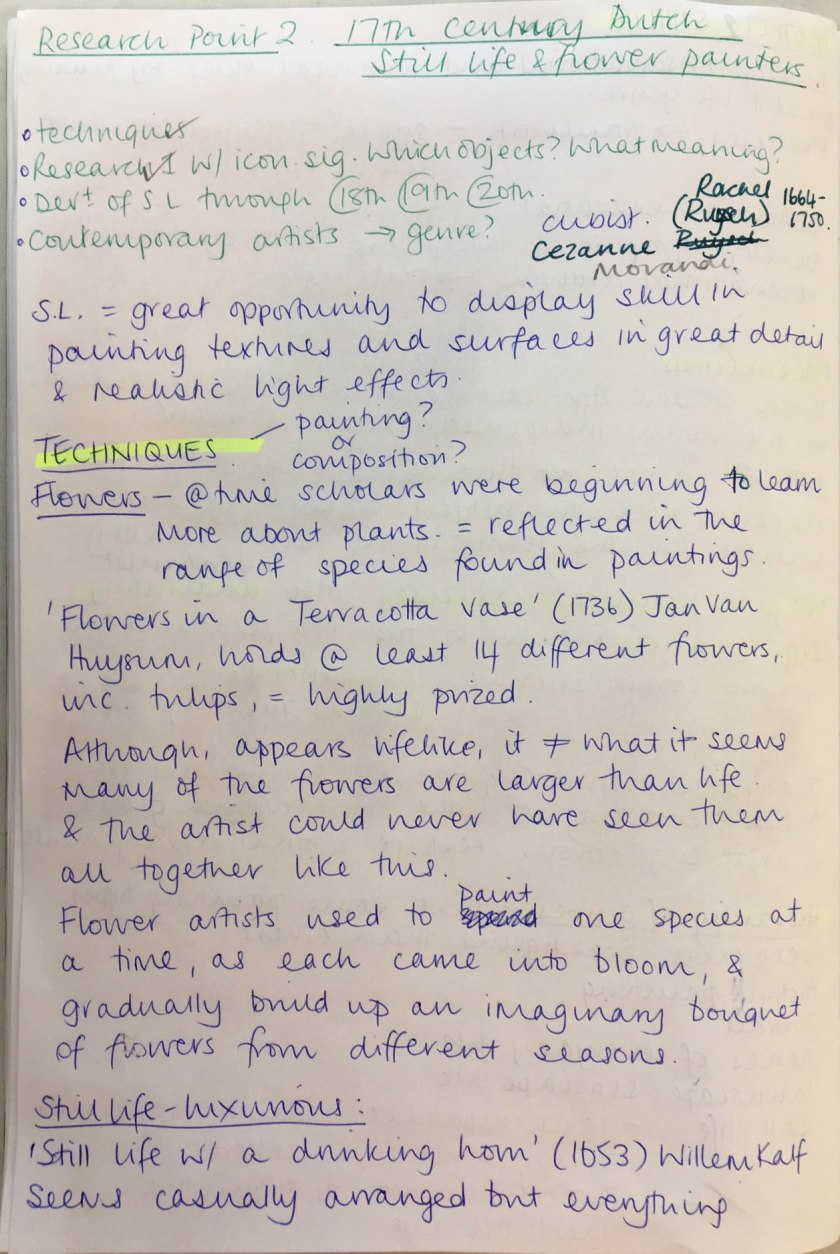 Research Point 2. 17th Century Dutch
Still life & flower painters.
• techniques
• Research 1 w/ icon. sig. which objects? What meaning?
• Devt of S.L through 18th 19th 20th.
• Contemporary artists → genre?
cubist.
Cezanne
Morandi.
Rachel
(Rugsch)
1664-
1750.
S.L. = great opportunity to display skill in
painting textures and surfaces in great detail
& realistic light effects.
TECHNIQUES — painting?
or
composition?
Flowers – @ time scholars were beginning to learn
More about plants. = reflected in the
range of species found in paintings.
'Flowers in a Terracotta Vase' (1736) Jan Van
Huysum, holds @ least 14 different flowers,
inc. tulips, = highly prized.
Although, appears lifelike, it ≠ what it seems
Many of the flowers are larger than life
& the artist could never have seen them
all together like this.
Flower artists used to paint one species at
a time, as each came into bloom, &
gradually build up an imaginary bouquet
of flowers from different seasons.
Still life - luxurious:
'Still life w/ a drinking horn' (1653) Willem Kalf
Seems casually arranged but everything